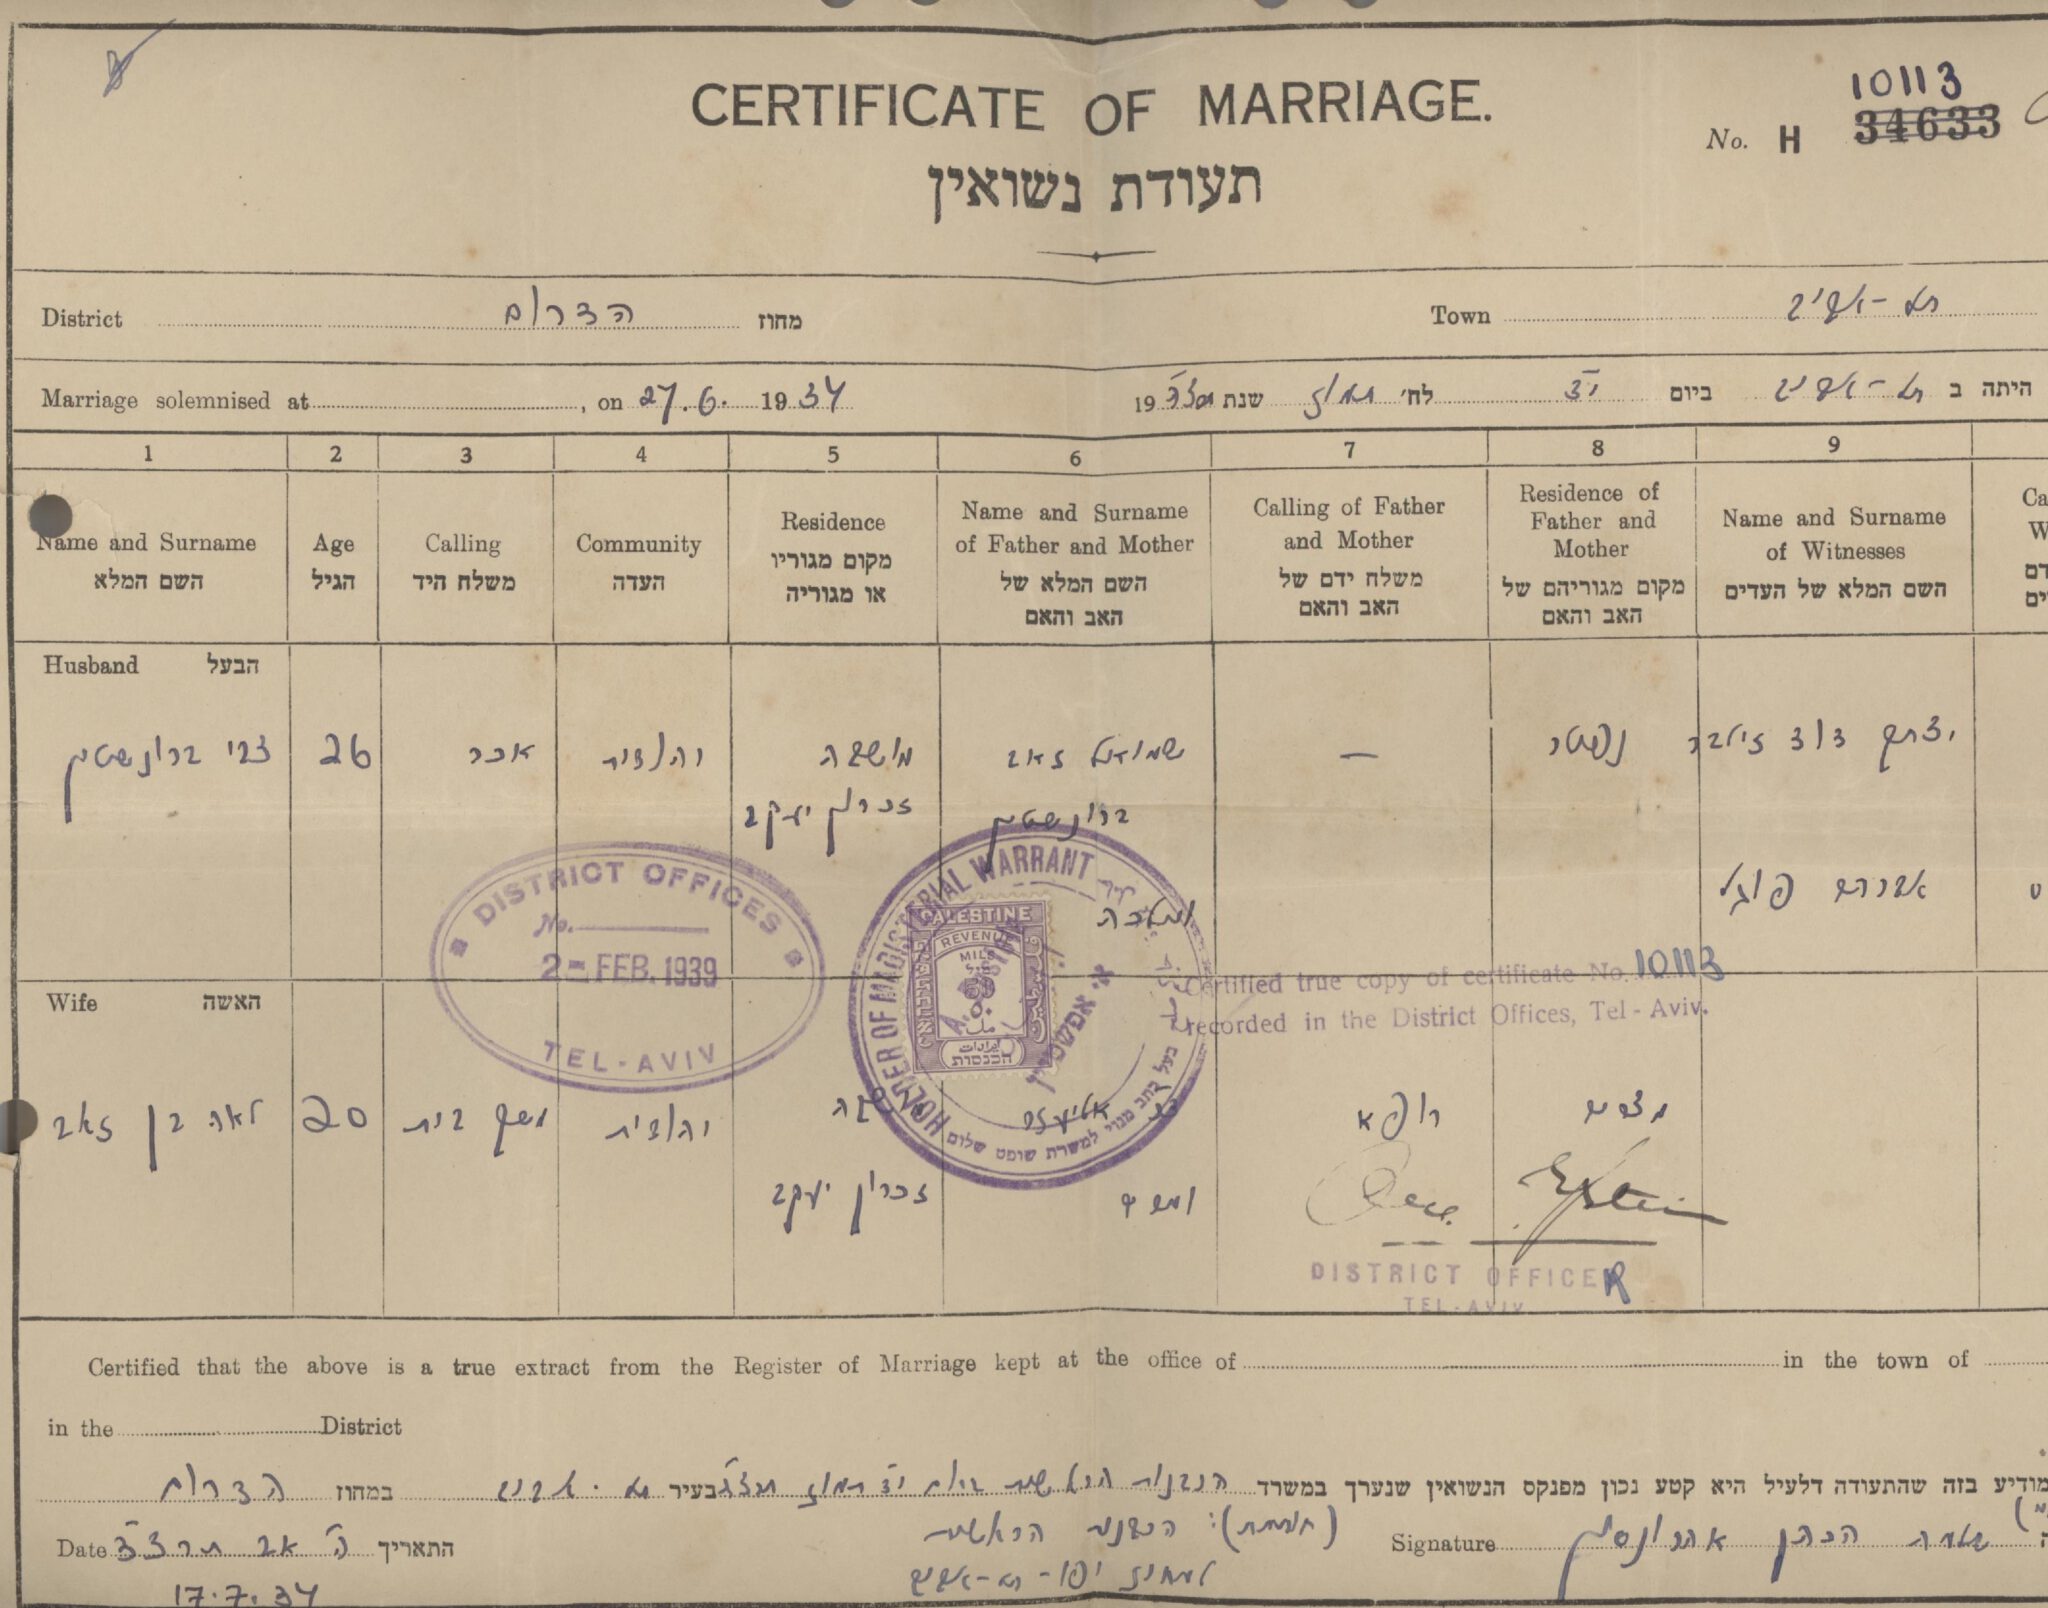 CERTIFICATE OF MARRIAGE.
תעודת נשואין
10113
No. H 34633
District הדרום מחוז
Town תל-אביב
Marriage solemnised at , on 27.6. 1934
היתה ב תל-אביב ביום יד לח' תמוז שנת 19
1 2 3 4 5 6 7 8 9
Name and Surname
השם המלא
Age
הגיל
Calling
משלח היד
Community
העדה
Residence
מקום מגוריו
או מגוריה
Name and Surname
of Father and Mother
השם המלא של
האב והאם
Calling of Father
and Mother
משלח ידם של
האב והאם
Residence of
Father and
Mother
מקום מגוריהם של
האב והאם
Name and Surname
of Witnesses
השם המלא של העדים
Husband הבעל
צבי ברונשטין
26
אכר
יהודית
מושבה
זכרון יעקב
שמואל זאב
ברונשטין
ומלכה
—
נפטר
יצחק דוד זילבר
אברהם פוגל
DISTRICT OFFICES
No.
2- FEB. 1939
TEL-AVIV
HOLDER OF MAGISTERIAL WARRANT
בעל כתב מנוי למשרת שופט שלום
א. אפשטיין
PALESTINE
REVENUE
MILS
50
הכנסות
Certified true copy of certificate No. 10113
recorded in the District Offices, Tel-Aviv.
Wife האשה
לאה בן זאב
20
משק בית
יהודית
מושבה
זכרון יעקב
אליעזר
רופא
מצרים
Epstein
DISTRICT OFFICER
TEL-AVIV
Certified that the above is a true extract from the Register of Marriage kept at the office of in the town of
in the District
מודיע בזה שהתעודה דלעיל היא קטע נכון מפנקס הנשואין שנערך במשרד הרבנות הראשית ביום יד תמוז תרצד בעיר תל-אביב במחוז הדרום
Signature שלמה הכהן אהרונסון
(חותמת): הרבנות הראשית
למחוז יפו-תל-אביב
Date ה' אב תרצ"ד התאריך
17.7.34